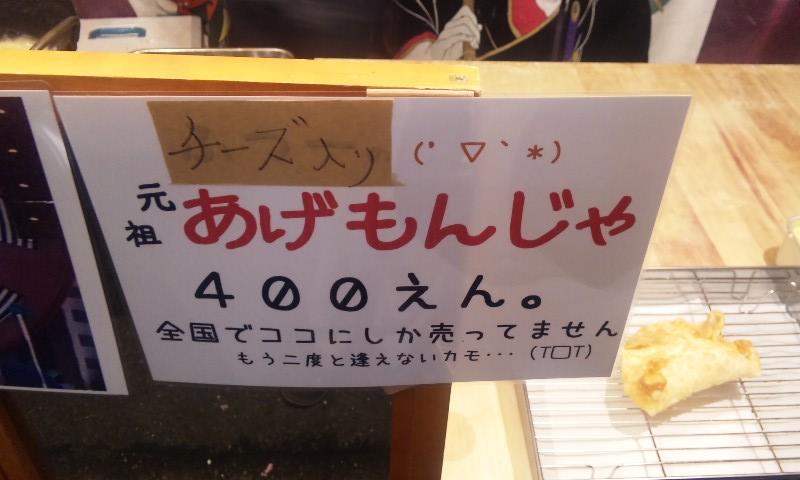 チーズ入り (´▽`*)
元祖 あげもんじゃ
４００えん。
全国でココにしか売ってません
もう二度と逢えないカモ･･･ (T□T)